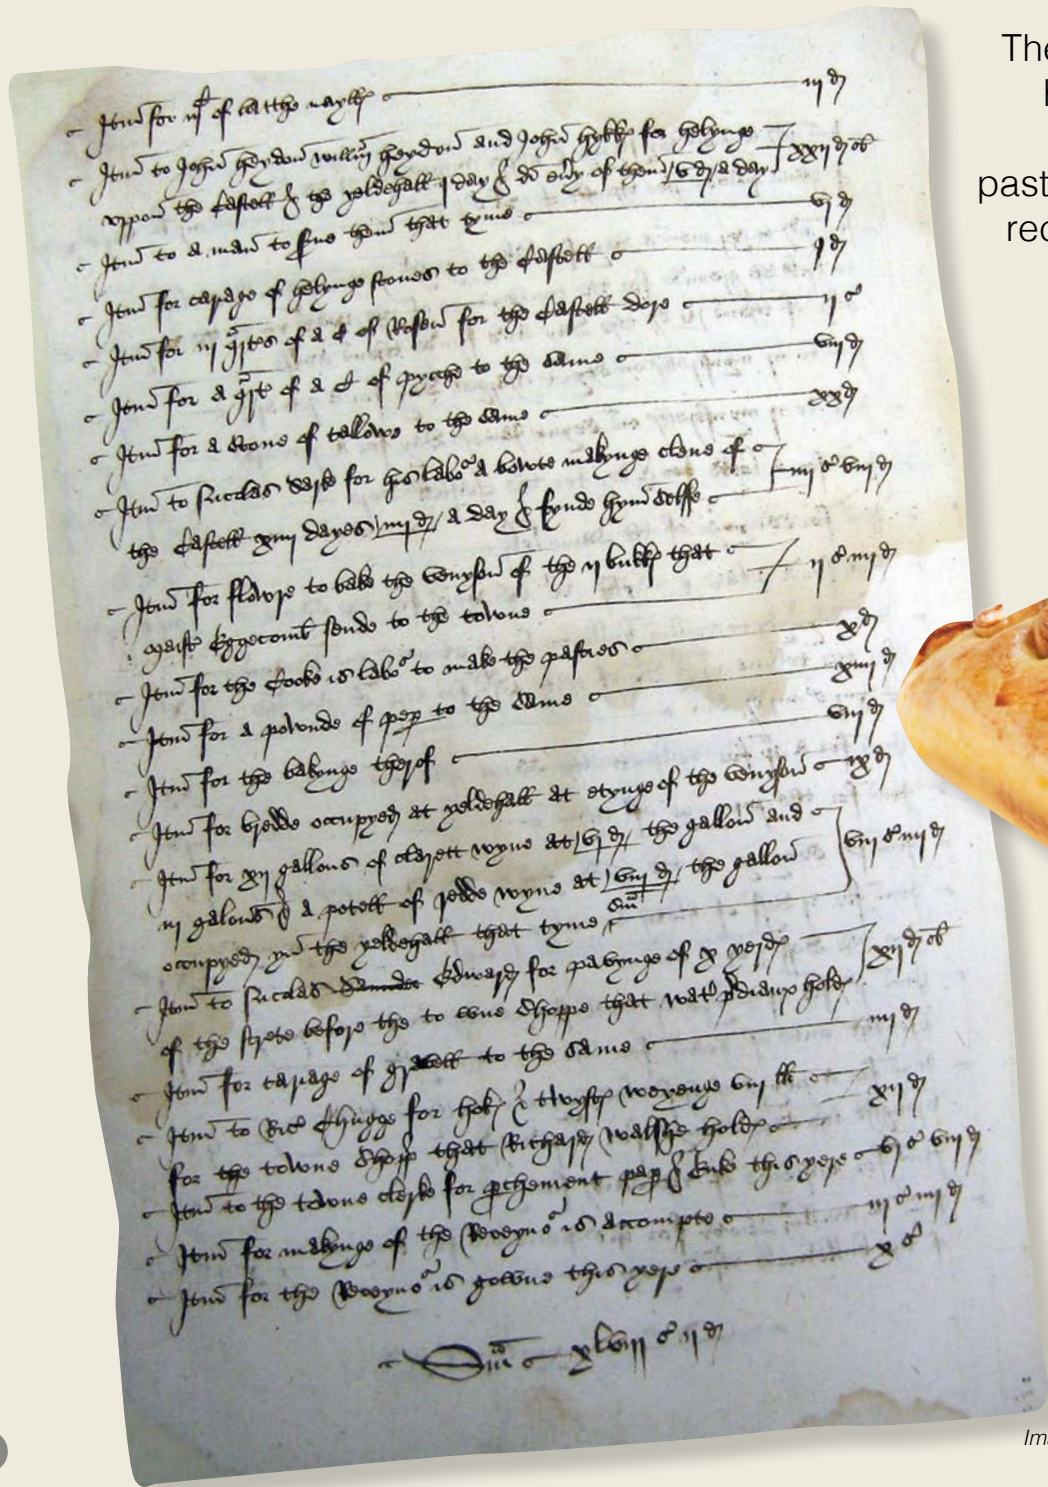 The
h
past
rec
Itm̄ for mł of latthe nayll iij d
Itm̄ to John̄ heydon̄ Willm̄ heydon̄ and John̄ hykk for helynge
vppon̄ the Castell & the yeldehall j day & di eūy of them̄ / v d / a day xxij d ob
Itm̄ to a man̄ to sūe them̄ that tyme vj d
Itm̄ for cariage of helynge stones to the Castell j d
Itm̄ for iij qrt̄es of a C of Rosen̄ for the Castell dore ij s
Itm̄ for a qrt̄ of a C of pycche to the same viij d
Itm̄ for a stone of tallowe to the same xx d
Itm̄ to Nicolas for his labor a bowte makynge clene of
the Castell xiiij dayes / iiij d / a day & fynde hym̄ selffe iiij s viij d
Itm̄ for flowre to bake the venyson̄ of the ij bukk that
maistr Eggecomb sende to the towne ij s iiij d
Itm̄ for the Cooke is labor to make the pasties x d
Itm̄ for a pownde of pep to the same xiiij d
Itm̄ for the bakynge therof viij d
Itm̄ for bredde occupyed at yeldehall at etynge of the venyson̄ ix d
Itm̄ for xij gallons of clarett wyne at / vj d / the gallon̄ and
iij galons & a potell of redde wyne at / viij d / the gallon̄ viij s iiij d
occupyed yn̄ the yeldehall that tyme Sm̄
Itm̄ to Nicolas Edward for pavynge of x yerd
of the strete before the to wne shoppe that Wat̄ hold xij d ob
Itm̄ for cariage of gravell to the same iiij d
Itm̄ to Ric Chugge for hok & twyst weyenge viij ll
for the towne shopp that Richard Walshe hold xij d
Itm̄ to the towne clerke for pchement pap & Enke this yere vj s viij d
Itm̄ for makynge of the Receyuor is accompte iij s iiij d
Itm̄ for the Receyuor is gowne this yere x s
Sm̄ xlviij s ij d
Ima